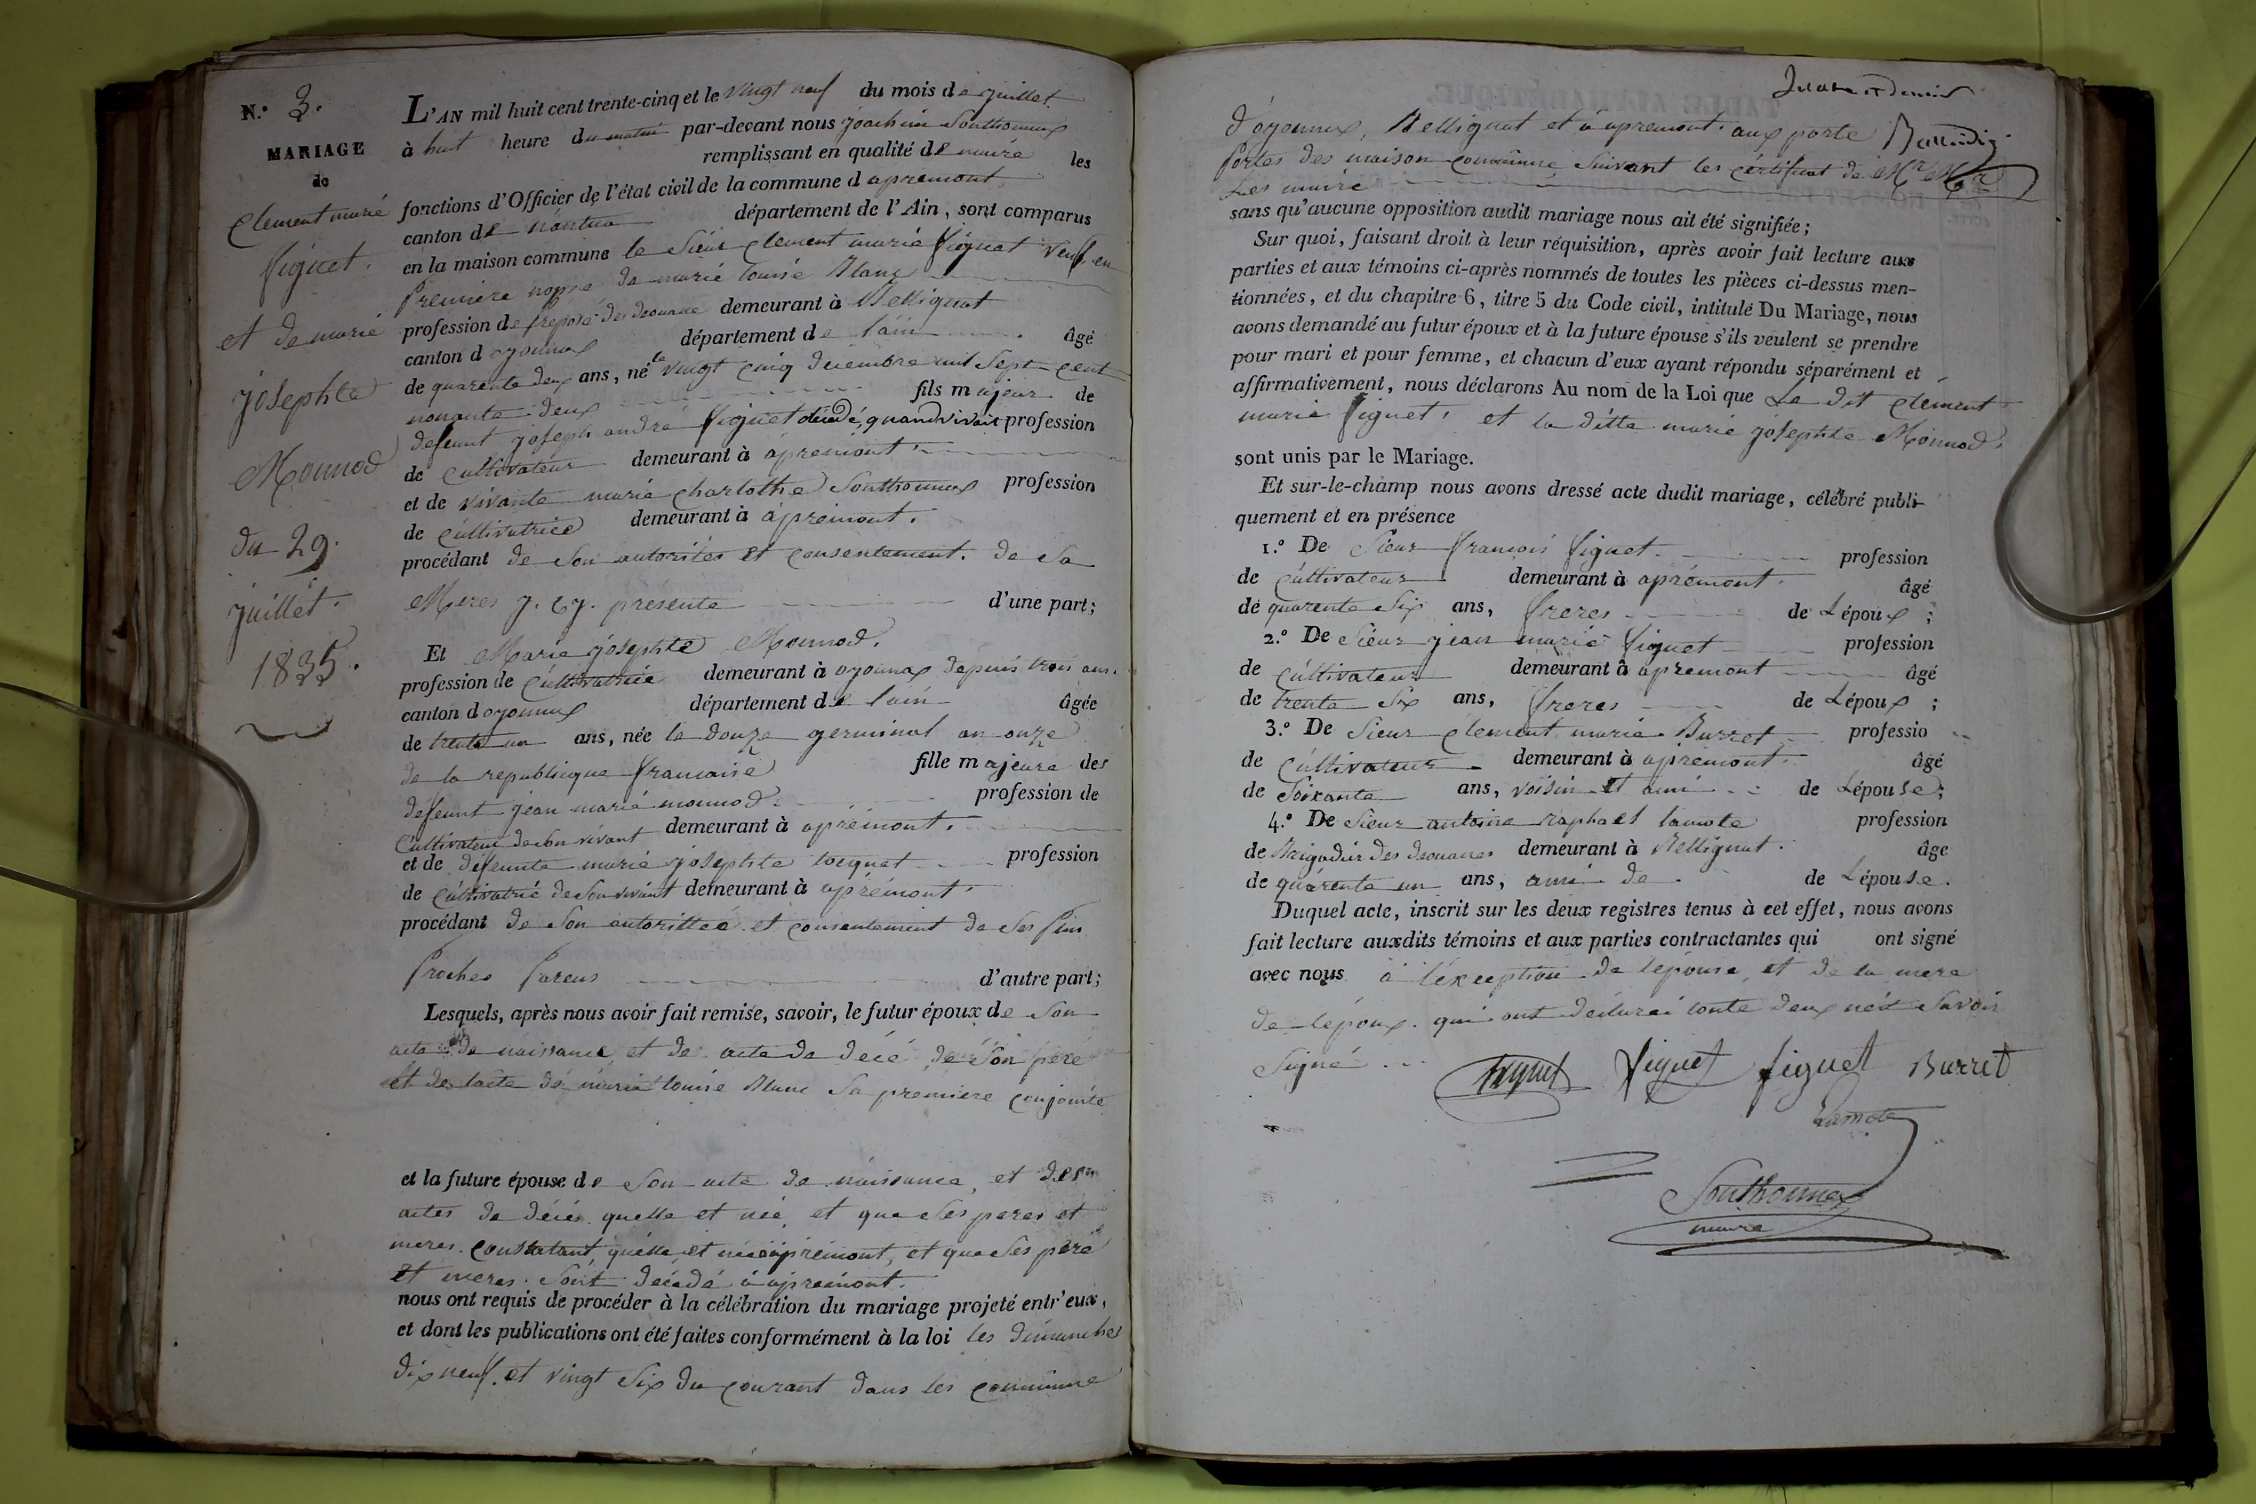 N.° 3.
MARIAGE
de
Clement marié
figuet.
et de marié
josephte
Monnod
du 29.
juillet.
1835.
L'AN mil huit cent trente-cinq et le vingt neuf du mois de juillet
à huit heure du matin par-devant nous joachim Sonthonnax
remplissant en qualité de maire les
fonctions d'Officier de l'état civil de la commune d apremont
canton de nantua département de l'Ain, sont comparus
en la maison commune le Sieur Clement marié figuet veuf en
première nopse de marié louise Blanc
profession de préposé des douane demeurant à Bellignat
canton d oyonnax département de lain âgé
de quarente deux ans, né le vingt cinq decembre mil sept cent
nonante deux fils majeur de
defeunt joseph andré figuet décédé, quand vivait profession
de cultivateur demeurant à apremont
et de vivante marie charlothe Sonthonnax profession
de cultivatrice demeurant à apremont.
procédant de son autorités et consentement. de sa
Meres j. cy. présente d'une part;
Et Marie josephte Monnod.
profession de cultivatrice demeurant à oyonnax depuis trois ans.
canton d oyonnax département de lain âgée
de trente un ans, née le douze germinal an onze
de la republicque francaise fille majeure des
defeunt jean marié monnod profession de
Cultivateur de son vivant demeurant à apremont.
et de defeunte marié josephte tocquet profession
de cultivatrié de son vivant demeurant à apremont.
procédant de son autorittée et consentement de ses plus
proches parens d'autre part;
Lesquels, après nous avoir fait remise, savoir, le futur époux de son
acte de naissance et de acte de décé de son père
et de lacte de marié louise Blanc sa première conjointe
et la future épouse de son acte de naissance, et des
actes de décés quelle et née, et que ses peres et
meres. constatant quélle et née à apremont, et que ses pere
et meres. sont décédé à apremont.
nous ont requis de procéder à la célébration du mariage projeté entr'eux,
et dont les publications ont été faites conformément à la loi les dimanche
dix neuf et vingt six du courant dans les commune
d'oyonnax, Bellignat et à apremont. aux porte
portes des maison commune suivant les certificat de Mr
Les maire
sans qu'aucune opposition audit mariage nous ait été signifiée;
Sur quoi, faisant droit à leur réquisition, après avoir fait lecture aux
parties et aux témoins ci-après nommés de toutes les pièces ci-dessus men-
tionnées, et du chapitre 6, titre 5 du Code civil, intitulé Du Mariage, nous
avons demandé au futur époux et à la future épouse s'ils veulent se prendre
pour mari et pour femme, et chacun d'eux ayant répondu séparément et
affirmativement, nous déclarons Au nom de la Loi que Le dit Clément
marié figuet, et la ditte marie josephte Monnod.
sont unis par le Mariage.
Et sur-le-champ nous avons dressé acte dudit mariage, célébré publi-
quement et en présence
1.° De Sieur francois figuet. profession
de cultivateur demeurant à apremont. âgé
de quarente six ans, freres de Lépoux;
2.° De Sieur jean marié figuet profession
de cultivateur demeurant à apremont âgé
de trente six ans, freres de Lépoux;
3.° De Sieur Clement marie Burret professio
de cultivateur demeurant à apremont. âgé
de soixante ans, voisin et ami de Lépouse;
4.° De Sieur antoine raphael lamote profession
de Brigadier des douanes demeurant à Bellignat. âge
de quarente un ans, ami de de Lépouse.
Duquel acte, inscrit sur les deux registres tenus à cet effet, nous avons
fait lecture auxdits témoins et aux parties contractantes qui ont signé
avec nous à léxception de lépouse et de la mere
de lépoux. qui ont déclaré toute deux ne savoir
Signé
figuet figuet figuet Burret
Lamote
Sonthonnax
maire